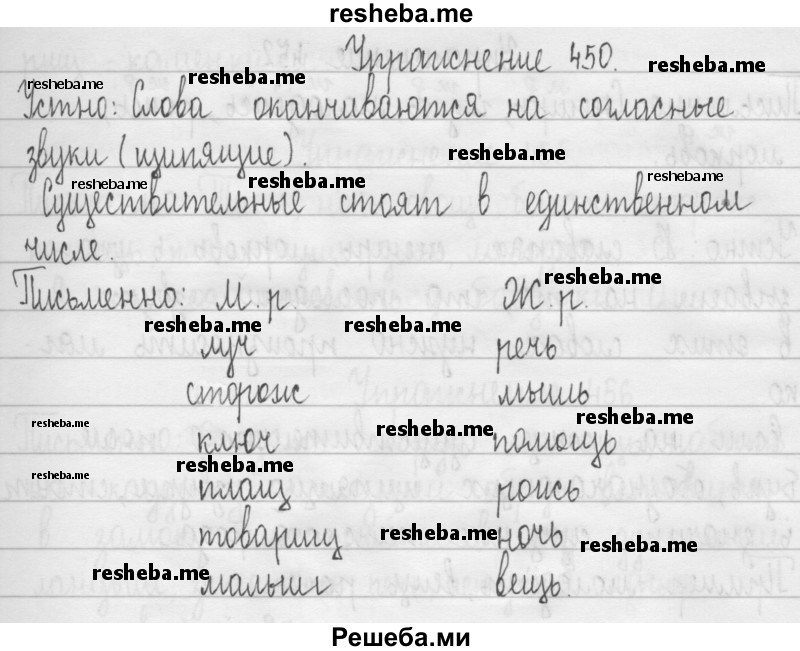 resheba.me
Упражнение 450.
resheba.me
resheba.me resheba.me
Устно: Слова оканчиваются на согласные
звуки (шипящие).
resheba.me
resheba.me resheba.me resheba.me
Существительные стоят в единственном
числе.
resheba.me
Письменно: М.р. Ж.р.
resheba.me resheba.me
луч речь
сторож мышь
resheba.me resheba.me resheba.me
ключ помощь
resheba.me resheba.me
плащ рожь
товарищ ночь
resheba.me resheba.me
resheba.me
малыш вещь
Решеба.ми